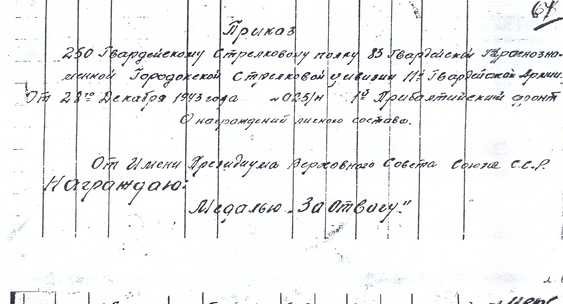 67
Приказ
250 Гвардейскому Стрелковому полку 83 Гвардейской Краснозна-
менной Городокской Стрелковой дивизии 11й Гвардейской Армии.
От 28го Декабря 1943 года № 025/н 1й Прибалтийский фронт
О награждений личного состава.
От Имени Президиума Верховного Совета Союза С.С.Р.
Награждаю:
Медалью „За Отвагу."